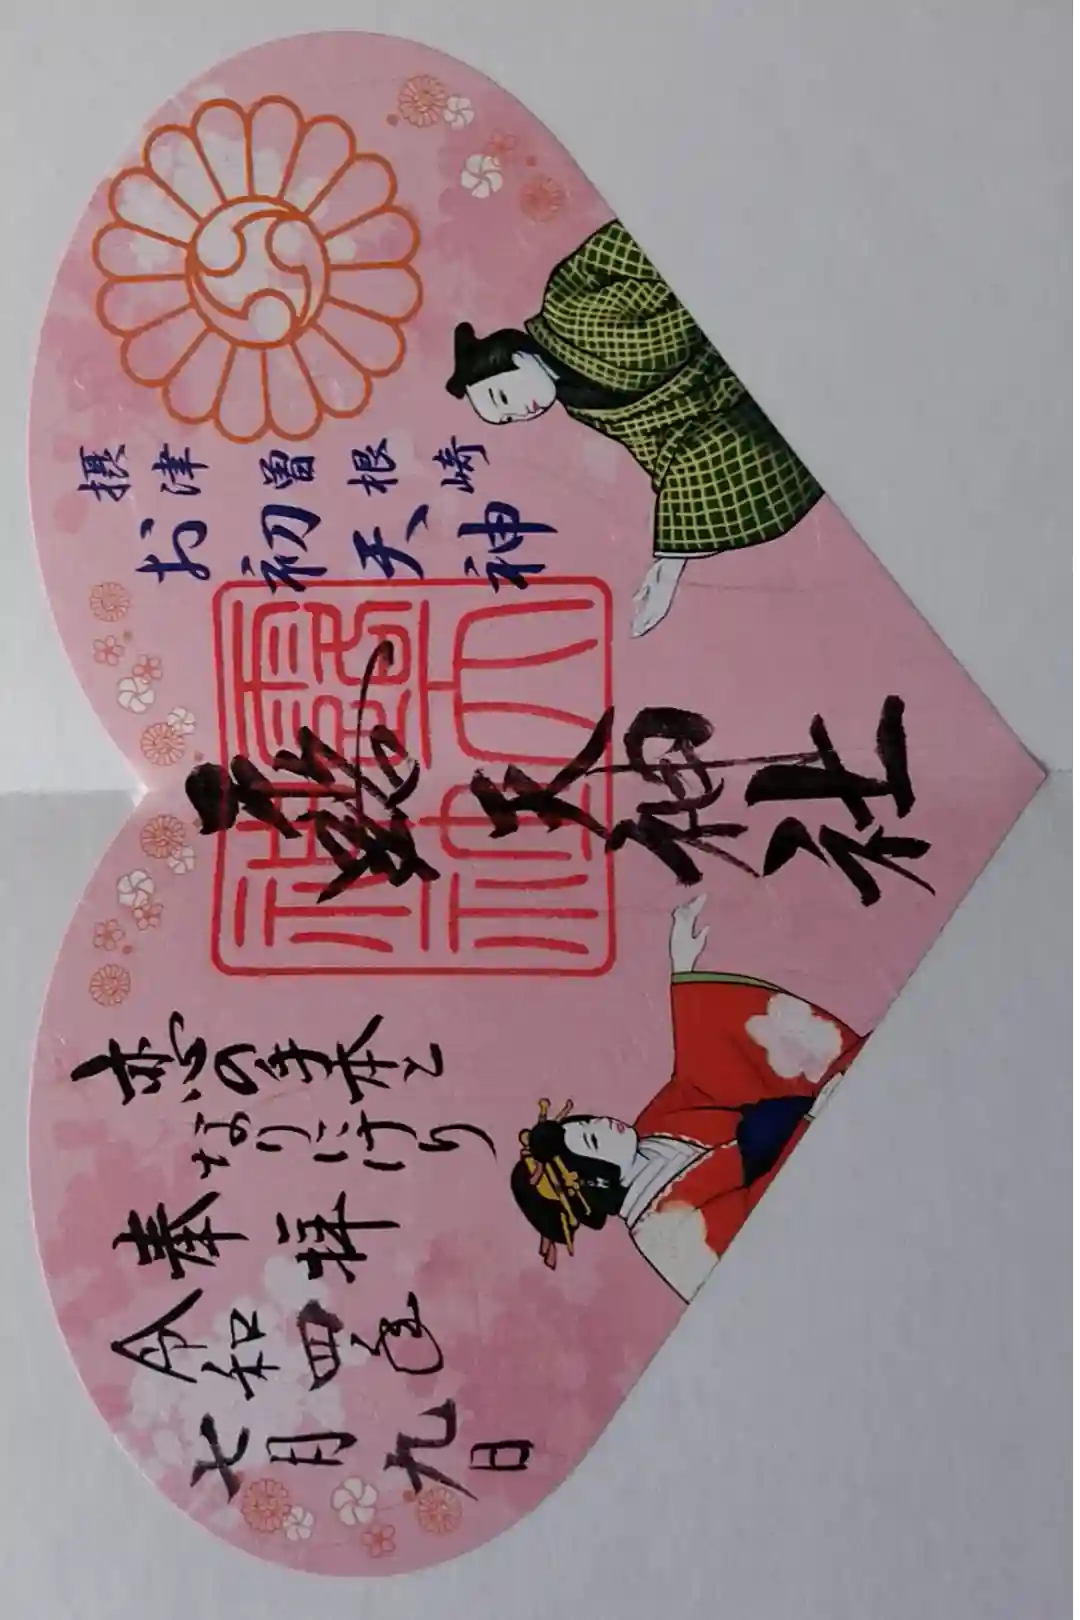 摂津曽根崎
お初天神
露天神社
恋の手本と
なりにけり
奉拝
令和四年
七月九日